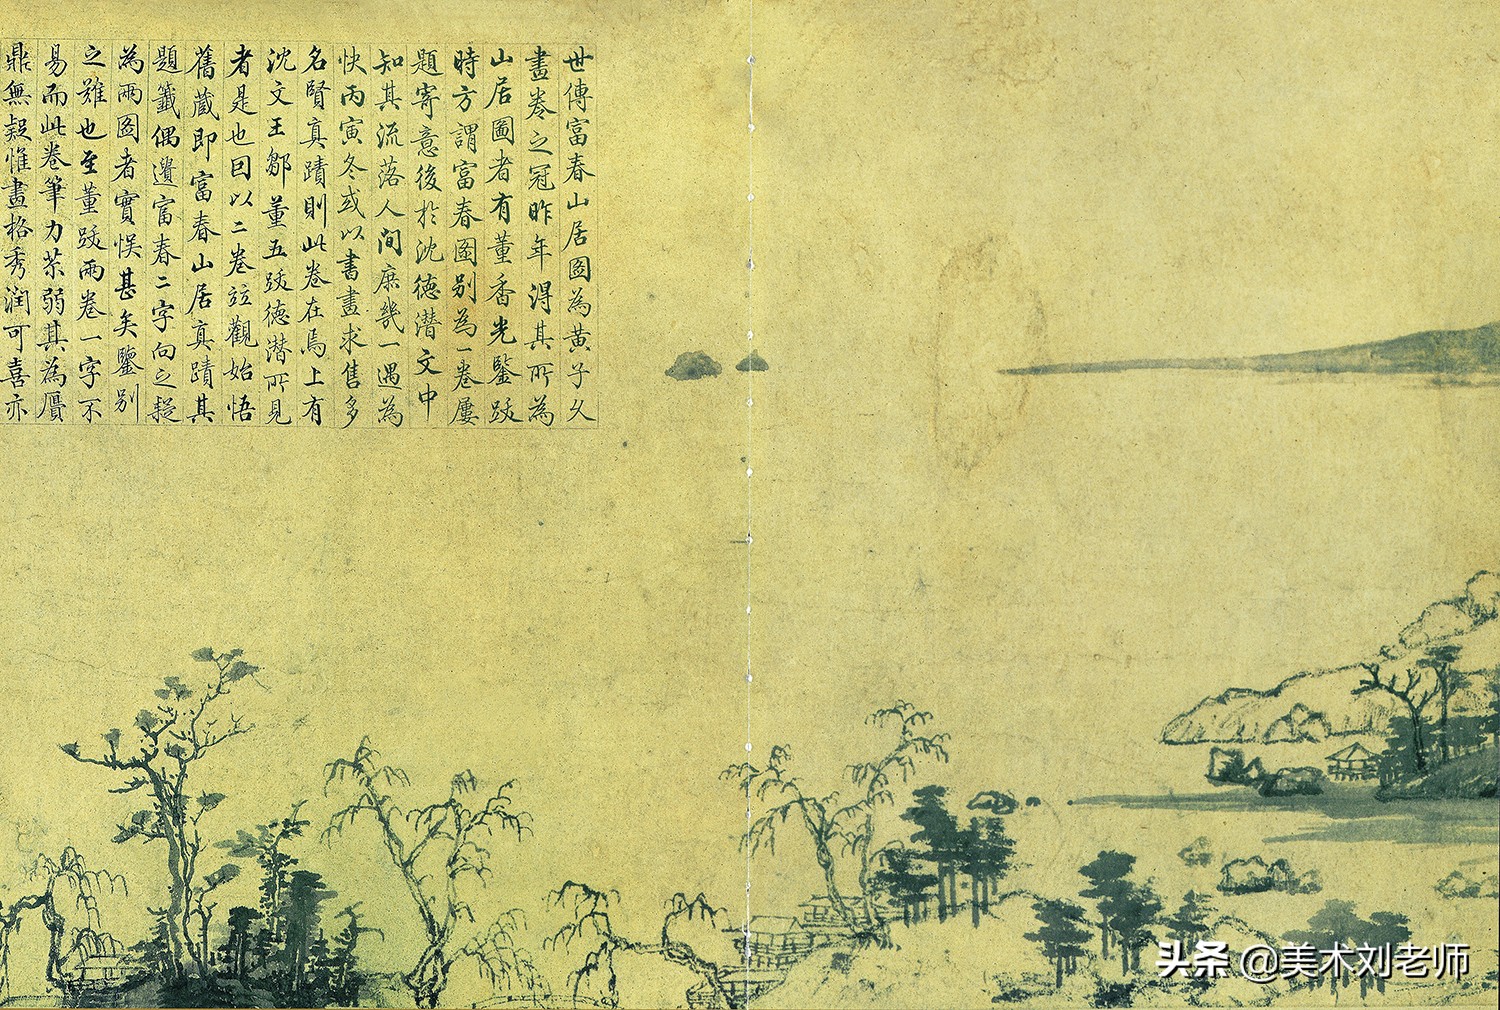 世傳富春山居圖為黃子久
畫卷之冠昨年得其所為
山居圖者有董香光鑒跋
時方謂富春圖別為一卷屢
題寄意後於沈德潛文中
知其流落人間庶幾一遇為
快丙寅冬或以書畫求售多
名賢真蹟則此卷在焉上有
沈文王鄒董五跋德潛所見
者是也因以二卷竝觀始悟
舊藏即富春山居真蹟其
題籤偶遺富春二字向之疑
為兩圖者實悞甚矣鑒別
之難也至董跋兩卷一字不
易而此卷筆力苶弱其為贗
鼎無疑惟畫格秀潤可喜亦
头条 @美术刘老师